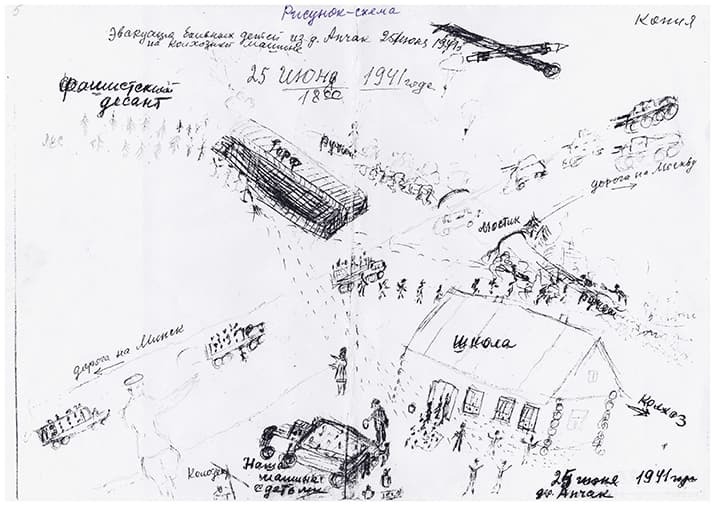 5
Рисунок-схема
Копия
Эвакуация больных детей из д. Апчак 25 июня 1941г
на колхозной машине
25 июня 1941 года
18 00
Фашистский
десант
лес
Торф
ручей
дорога на Москву
мостик
ручей
школа
дорога на Минск
колхоз
Колодец
Наша
машина
с детьми
25 июня 1941 года
д. Апчак